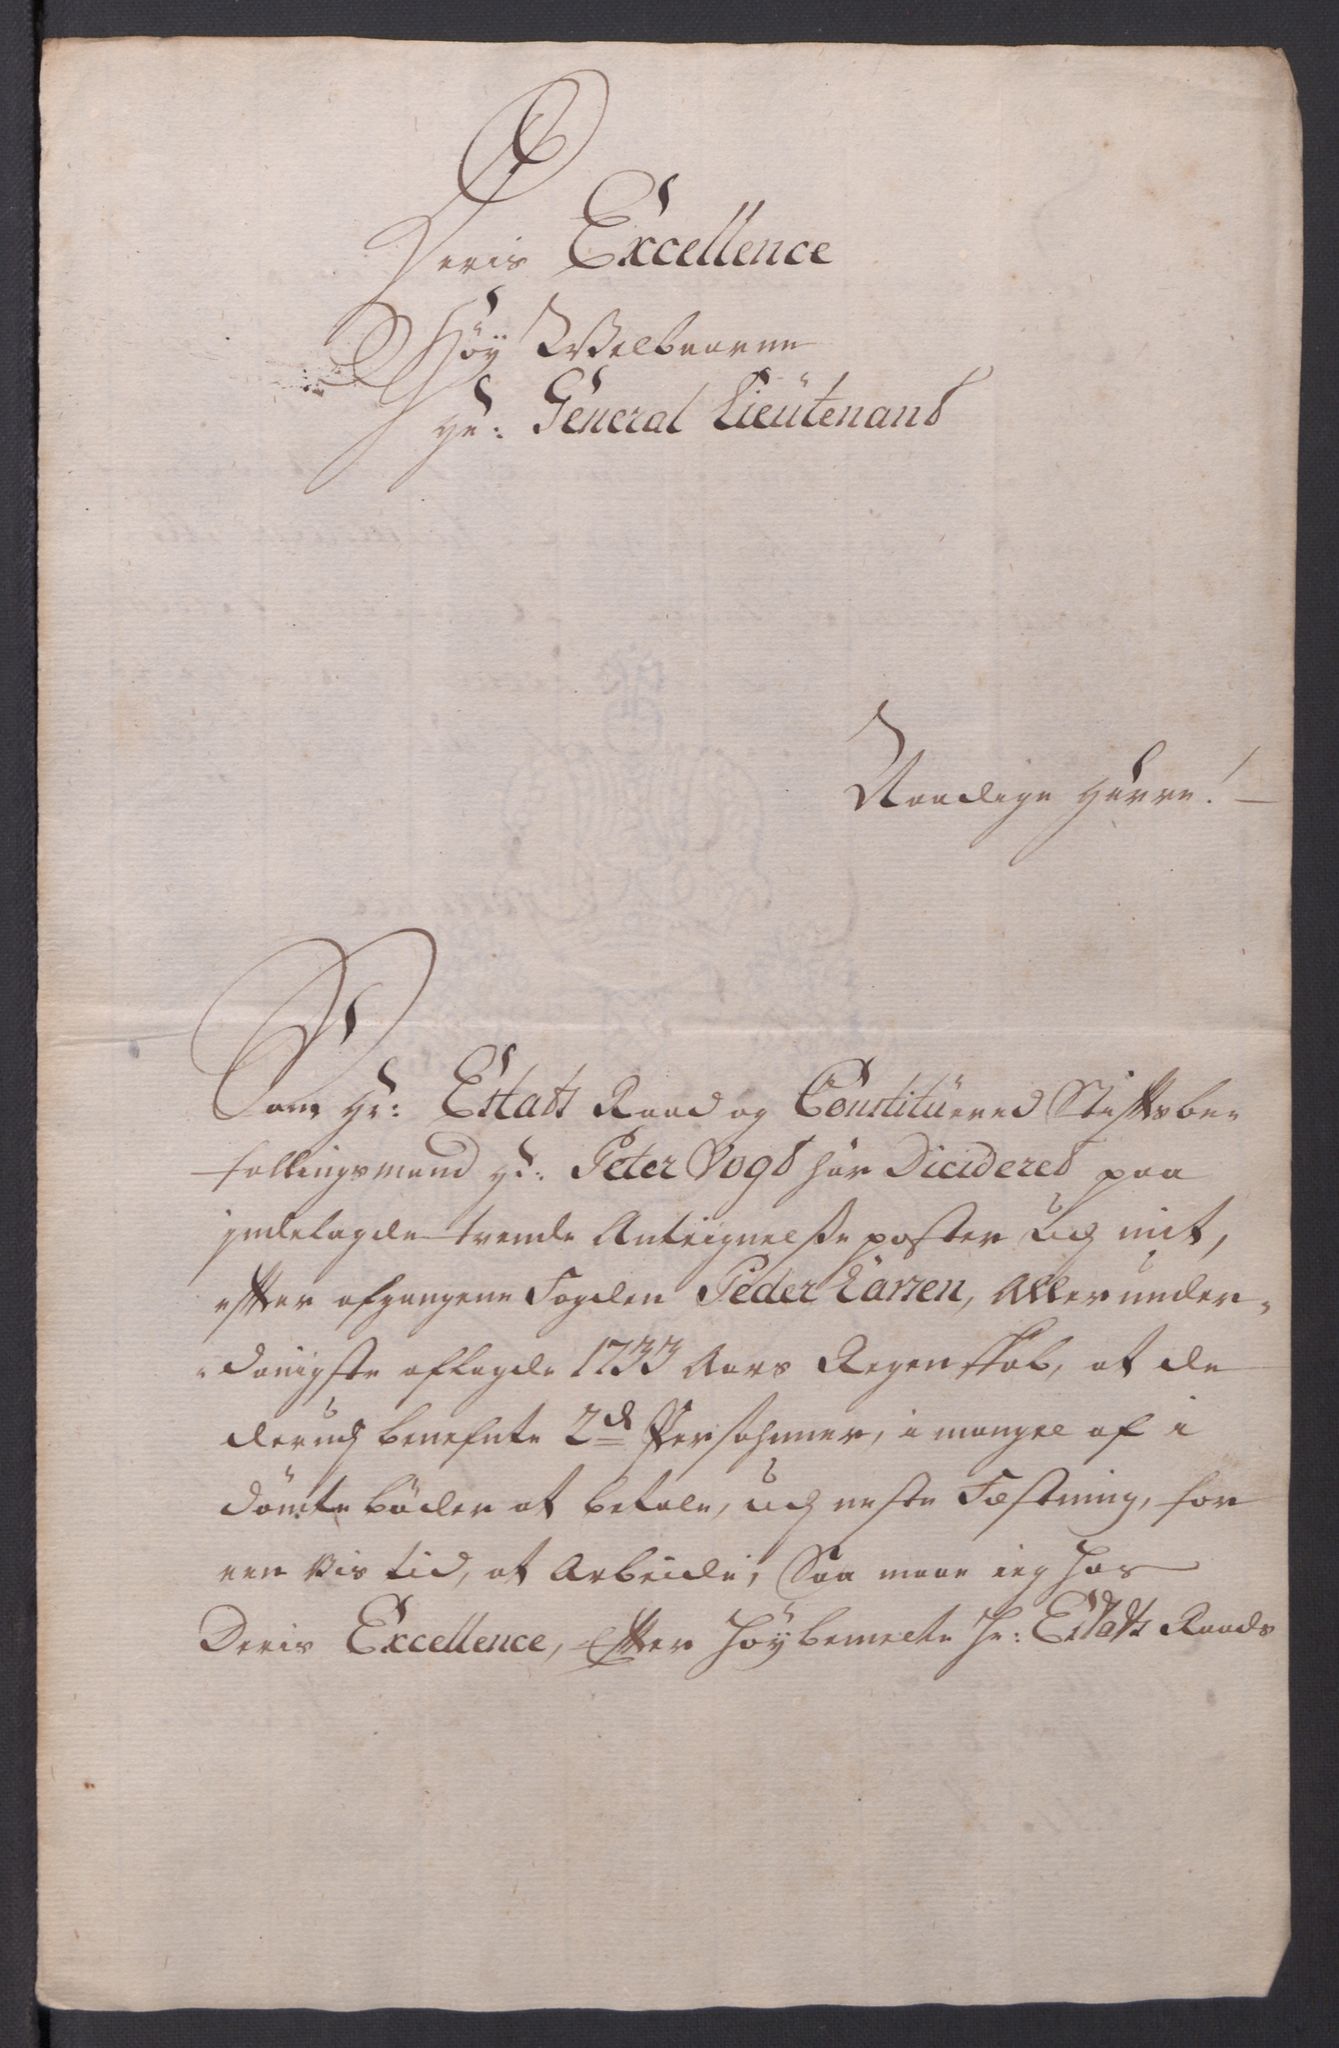 Deris Excellence
Høy Welbaarne
Hr: General Lieutenand
Naadige Herre!
Som Hr: Estats Raad og Constitüered Stiftsbe-
fallingsmand Hr: Peter Vogd har Dicidered paa
indelagde trende Anteignelse poster udj mit,
efter afgangene Fogden Peder Larsen, Allerunder-
danigste aflagde 1733 Aars Regenskab, at de
derudj benefnte 2de Persohner, i mangel af i
dømte bøder at betale, udj neste Festning, for
een vis tid, at Arbeide, Saa maae ieg hos
Deris Excellence, Efter Høybemelte Hr: Estats Raads